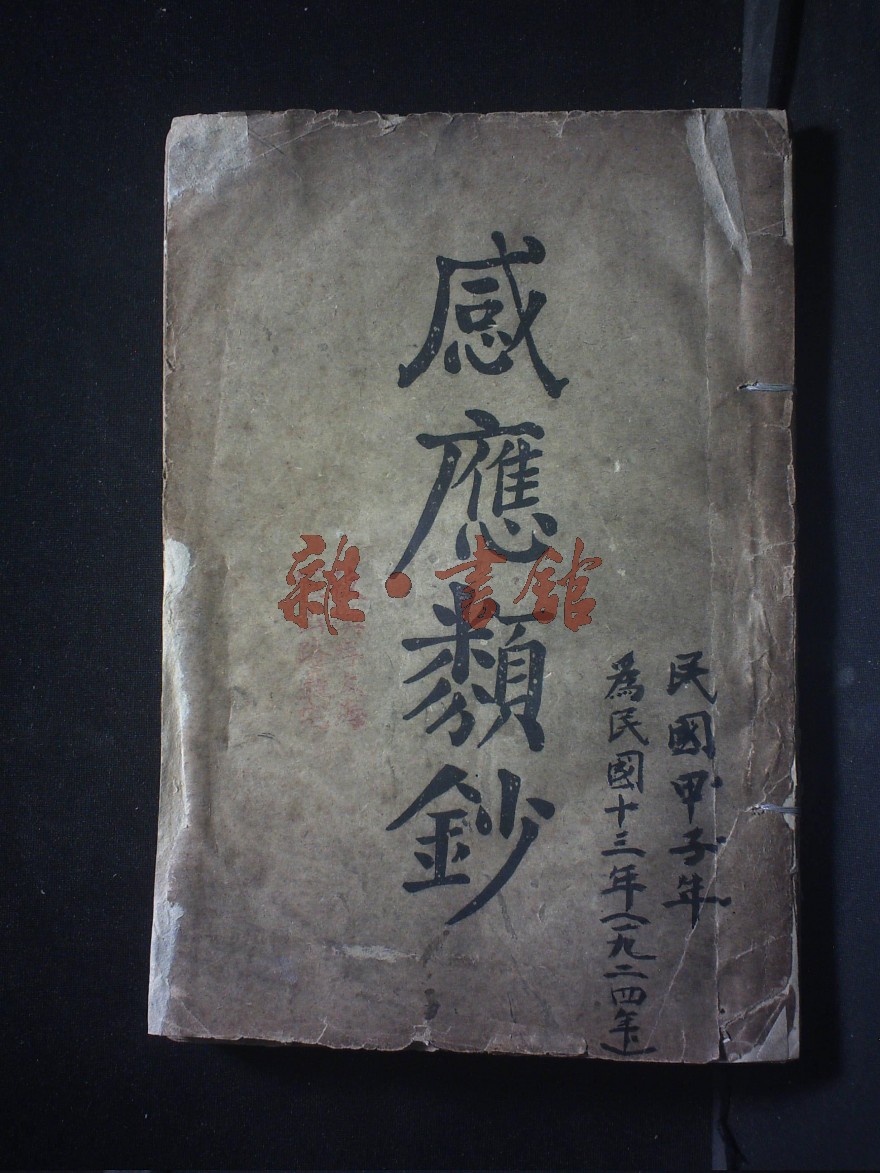 民國甲子年
為民國十三年(一九二四年)
感應類鈔
雜·書館